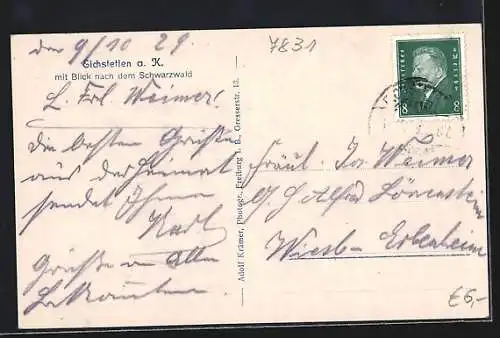 den 9/10 29.
7831
Eichstetten a. K.
mit Blick nach dem Schwarzwald
L. Frl. Weimer!
Die besten Grüsse
aus der Heimat
sendet Ihnen
Karl
Grüsse an Allen
Bekannten
Adolf Krämer, Photogr., Freiburg i. B., Gresserstr. 13.
Fräul. Weimer
Alfred Löwenstein
Wiesb- Erbenheim
DEUTSCHES REICH
8 8
€6,-